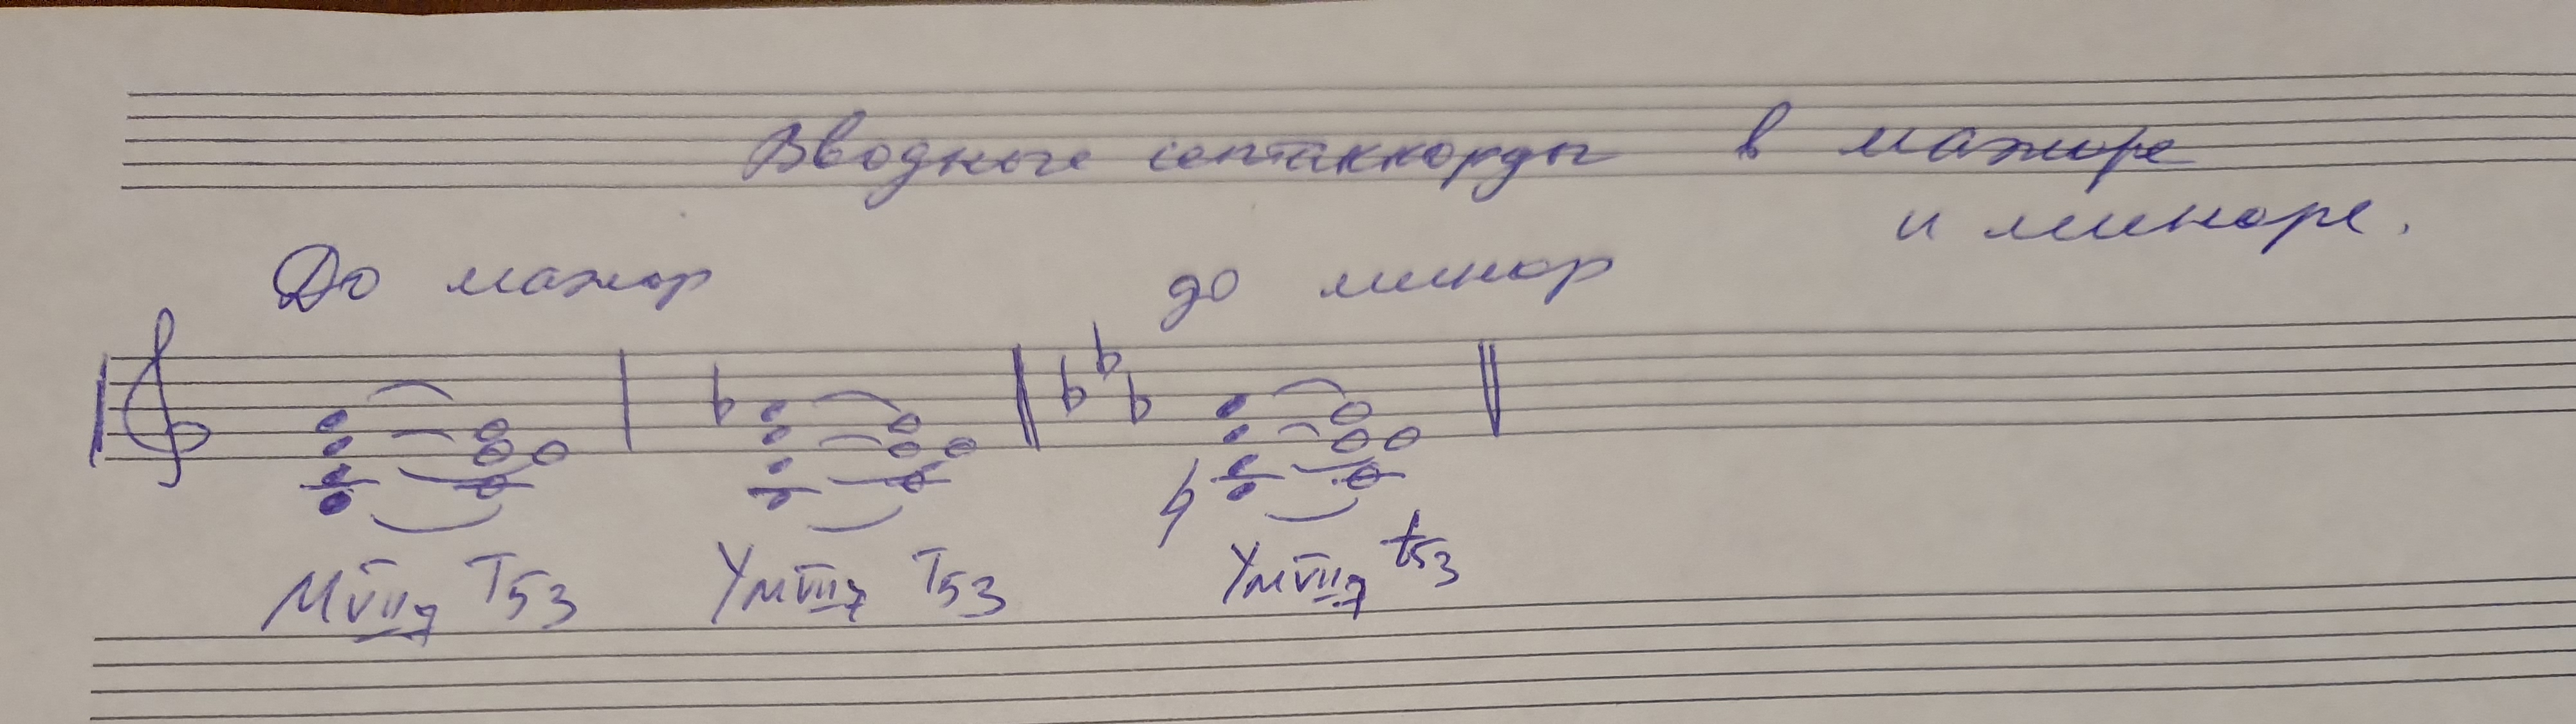 Вводные септаккорды в мажоре
и миноре.
До мажор до минор
МVII7 T53 УмVII7 T53 УмVII7 t53